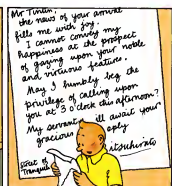 Mr Tintin,
the news of your arrival
fills me with joy.
I cannot convey my
happiness at the prospect
of gazing upon your noble
and virtuous features.
May I humbly beg the
privilege of calling upon
you at 3 o'clock this afternoon?
My servant will await your
gracious reply
itsuhirato
Street of
Tranquil